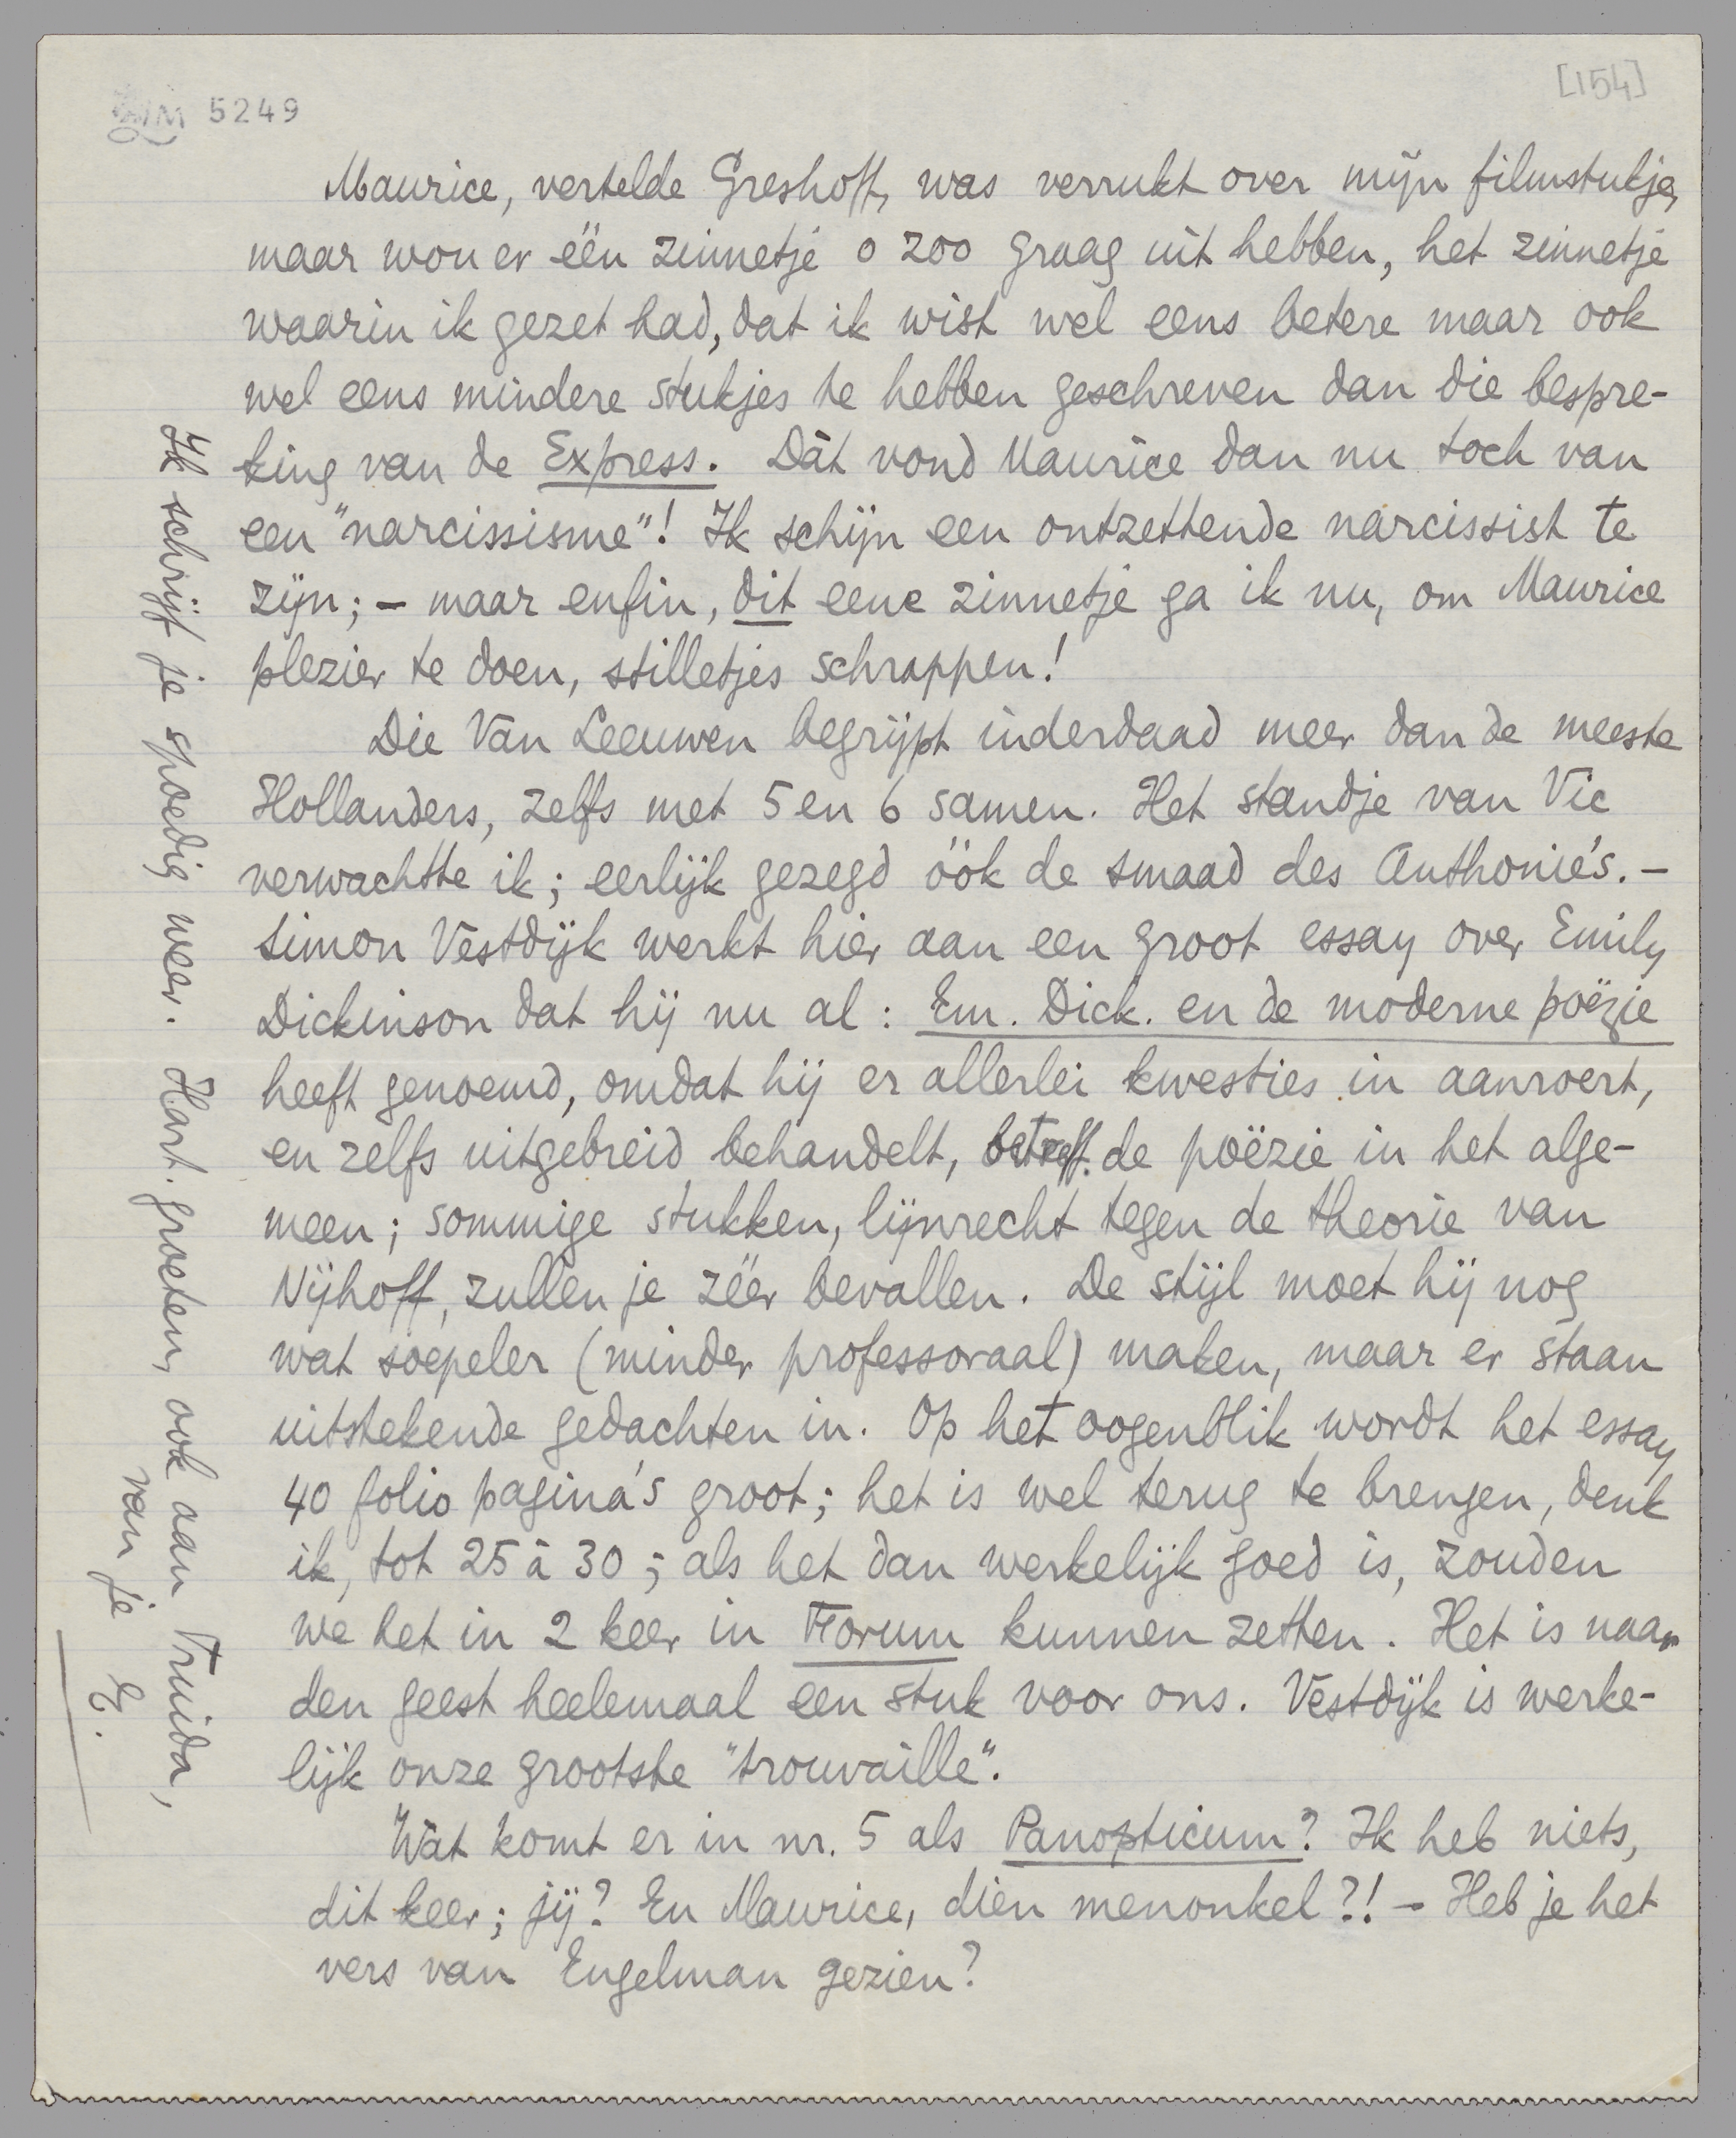 5249
[154]
Maurice, vertelde Greshoff, was verrukt over mijn filmstukje,
maar wou er één zinnetje o zoo graag uit hebben, het zinnetje
waarin ik gezet had, dat ik wist wel eens betere maar ook
wel eens mindere stukjes te hebben geschreven dan die bespre-
king van de Express. Dàt vond Maurice dan nu toch van
een "narcissisme"! Ik schijn een ontzettende narcissist te
zijn; – maar enfin, dit eene zinnetje ga ik nu, om Maurice
plezier te doen, stilletjes schrappen!
Die Van Leeuwen begrijpt inderdaad meer dan de meeste
Hollanders, zelfs met 5 en 6 samen. Het standje van Vic
verwachtte ik; eerlijk gezegd óók de smaad des Anthonie's. –
Simon Vestdijk werkt hier aan een groot essay over Emily
Dickinson dat hij nu al: Em. Dick. en de moderne poëzie
heeft genoemd, omdat hij er allerlei kwesties in aanroert,
en zelfs uitgebreid behandelt, betreff. de poëzie in het alge-
meen; sommige stukken, lijnrecht tegen de theorie van
Nijhoff, zullen je zéér bevallen. De stijl moet hij nog
wat soepeler (minder professoraal) maken, maar er staan
uitstekende gedachten in. Op het oogenblik wordt het essay
40 folio pagina's groot; het is wel terug te brengen, denk
ik, tot 25 à 30; als het dan werkelijk goed is, zouden
we het in 2 keer in Forum kunnen zetten. Het is naar
den geest heelemaal een stuk voor ons. Vestdijk is werke-
lijk onze grootste "trouvaille".
Wat komt er in nr. 5 als Panopticum? Ik heb niets,
dit keer; jij? En Maurice, dien menonkel?! – Heb je het
vers van Engelman gezien?
Ik schrijf je spoedig weer. Hart. groeten, ook aan Truida,
van je
E.